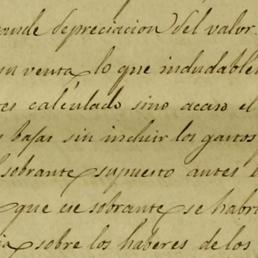 grande depreciacion del valor
su venta lo que indudablem
tes calculado sino acaso el
bajar sin incluir los gastos
sobrante supuesto antes
que ese sobrante se habri
sobre los haberes de los